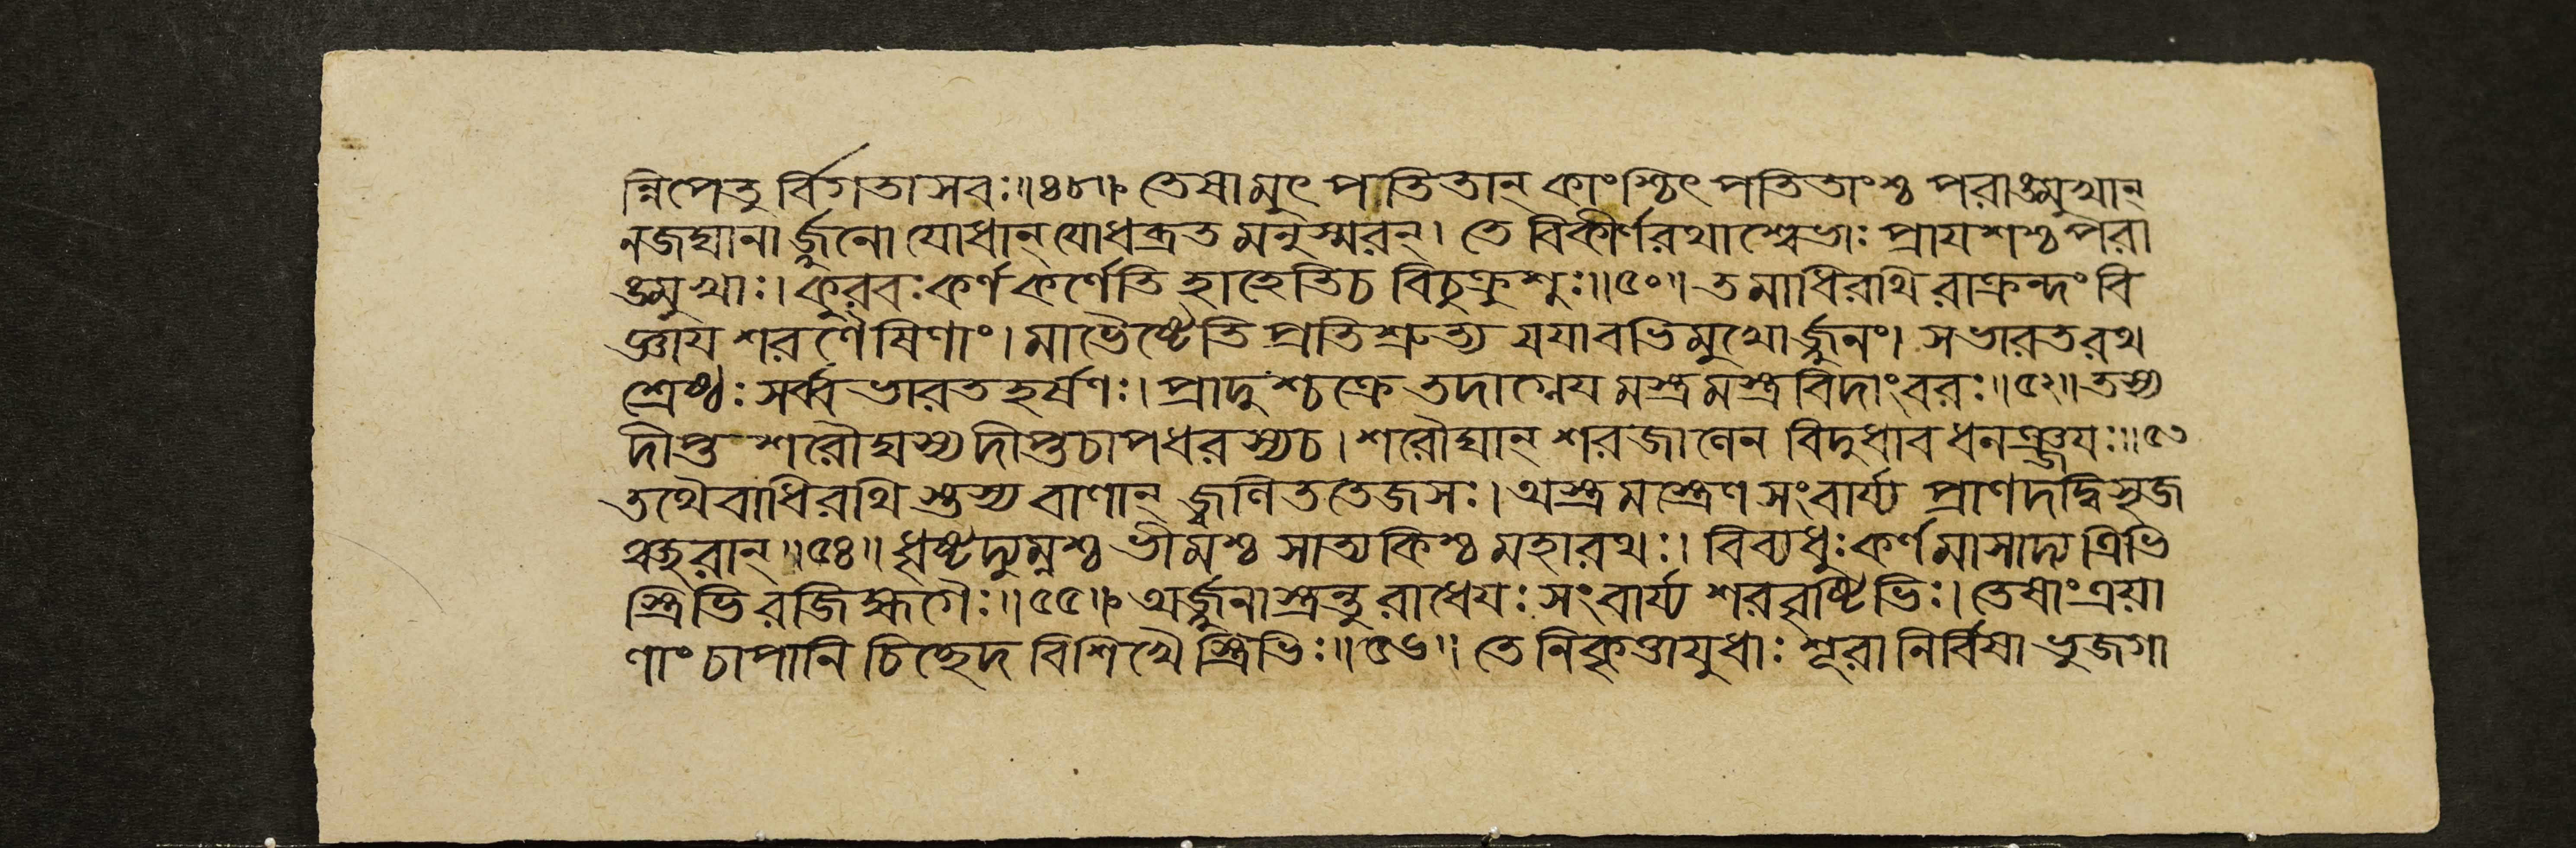 ন্নিপেতু র্বিগতাসবঃ॥৪৮॥ তেষামুৎ পতিতান্ কাংশ্চিৎ পতিতাংশ্চ পরাঙ্মুখান্
নজঘানার্জ্জুনো যোধান্ যোধব্রত মনুস্মরন্। তে বিকীর্ণরথাশ্বেভাঃ প্রাযশশ্চ পরা
ঙ্মুখাঃ। কুরবঃ কর্ণ কর্ণেতি হাহেতিচ বিচুক্রুশুঃ॥৫০॥ তমাধিরথি রাক্রন্দং বি
জ্ঞায শরণৈষিণাং। মাভৈষ্টেতি প্রতিশ্রুত্য যযাবভিমুখোর্জ্জুনং। সভারতরথ
শ্রেষ্ঠঃ সর্ব্ব ভারত হর্ষণঃ। প্রাদুশ্চক্রে তদাগ্নেয মস্ত্রমস্ত্রবিদাংবরঃ॥৫২॥ তস্য
দীপ্ত শরৌঘস্য দীপ্তচাপধরস্যচ। শরৌঘান্ শরজালেন বিদুধাব ধনঞ্জযঃ॥৫৩
তথৈবাধিরথি স্তস্য বাণান্ জ্বলিততেজসঃ। অস্ত্রমস্ত্রেণ সংবার্য্য প্রাণদদ্বিসৃজ
ঞ্ছরান্॥৫৪॥ ধৃষ্টদ্যুম্নশ্চ ভীমশ্চ সাত্যকিশ্চ মহারথঃ। বিব্যধুঃ কর্ণমাসাদ্য ত্রিভি
স্ত্রিভি রজিহ্মগৈঃ॥৫৫॥ অর্জ্জুনাস্ত্রন্তু রাধেযঃ সংবার্য্য শরবৃষ্টিভিঃ। তেষাং ত্রয়া
ণাং চাপানি চিচ্ছেদ বিশিখৈ স্ত্রিভিঃ॥৫৬॥ তে নিকৃত্তাযুধাঃ শূরা নির্বিষা ভুজগা